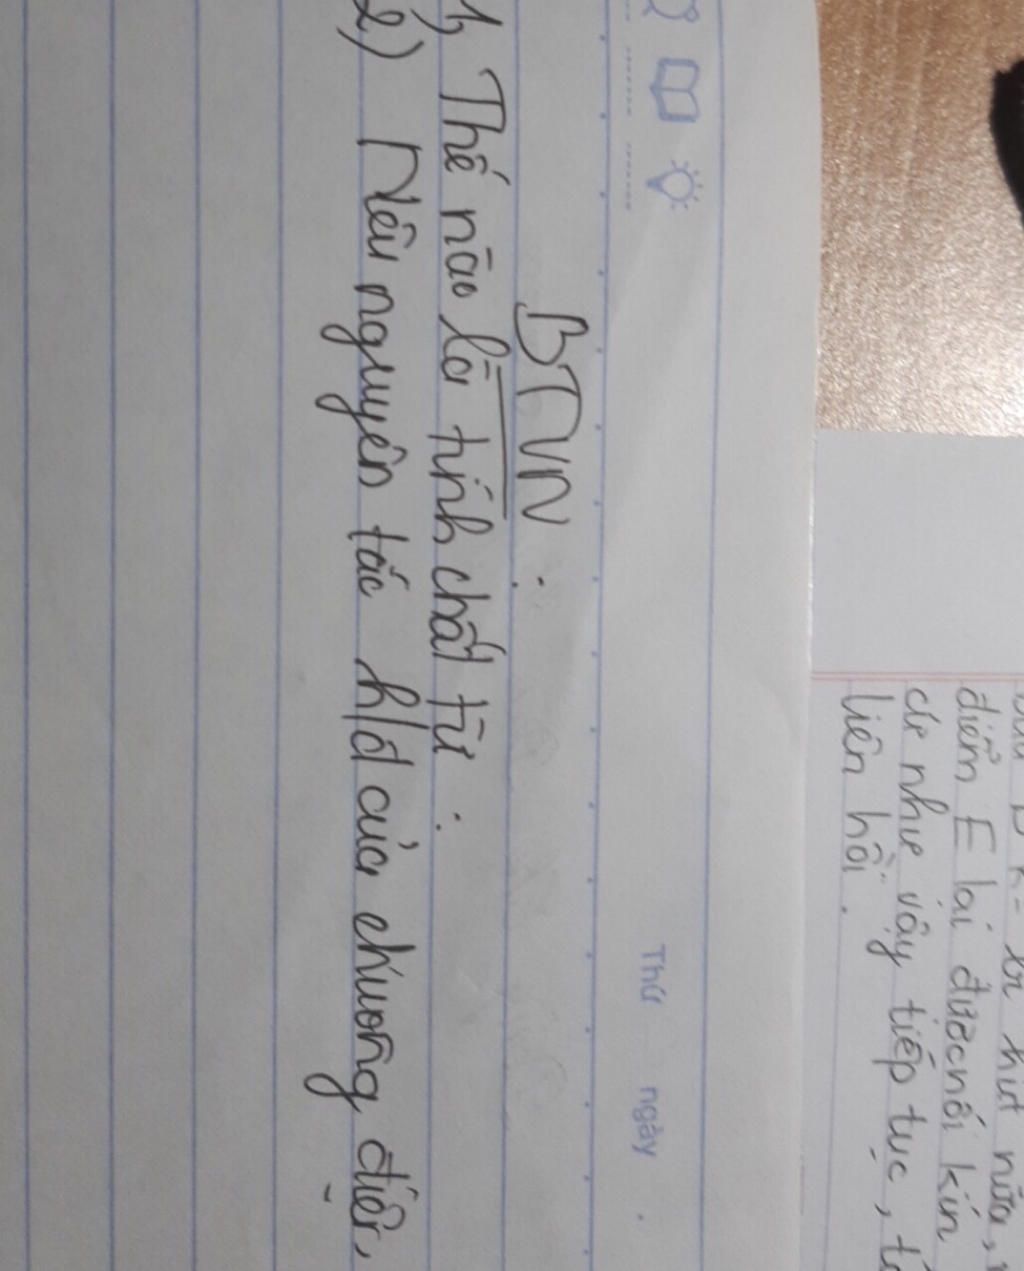 Thứ ngày
BTVN:
1, Thế nào là tính chất từ:
2) Nêu nguyên tắc h/đ của chuông điện,
hút nữa,
điểm E lại được nối kín
cứ như vậy tiếp tục,
liên hồi.